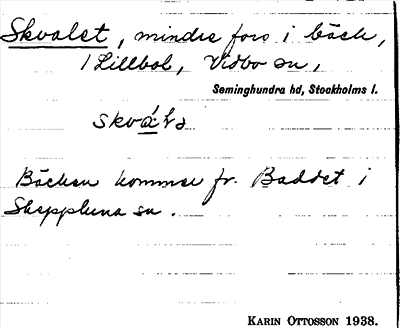 Skvalet, mindre fors i bäck,
i Lillbol, Vidbo sn,
Seminghundra hd, Stockholms l.
Bäcken kommer fr. Baddet i
Skepptuna sn.
KARIN OTTOSSON 1938.